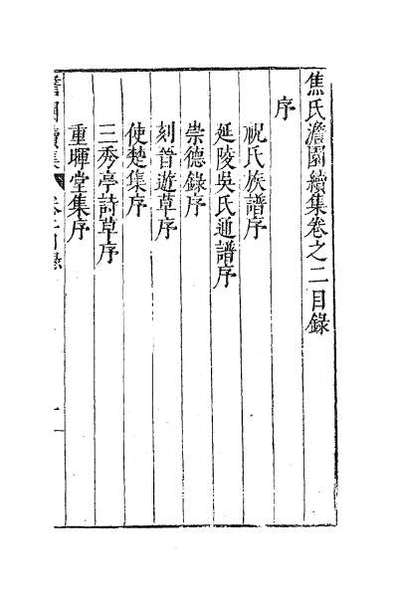 焦氏澹園續集卷之二目錄
序
祝氏族譜序
延陵吳氏通譜序
崇德錄序
刻晉遊草序
使楚集序
三秀亭詩草序
重暉堂集序